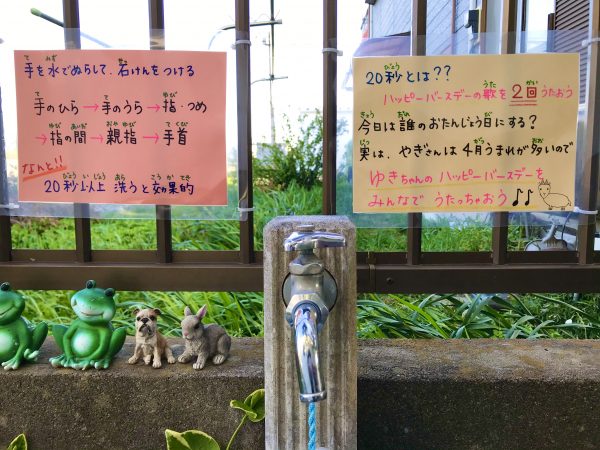 手を水でぬらして、石けんをつける
手のひら→手のうら→指・つめ
→指の間→親指→手首
なんと!!
20秒以上 洗うと効果的
20秒とは??
ハッピーバースデーの歌を2回うたおう
今日は誰のおたんじょう日にする?
実は、やぎさんは4月うまれが多いので
ゆきちゃんのハッピーバースデーを
みんなでうたっちゃおう♪♫